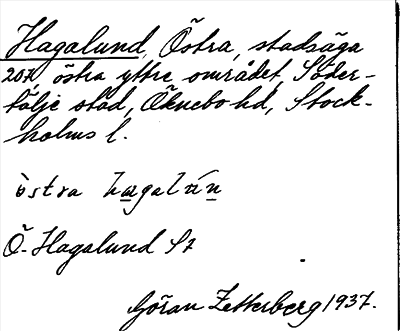 Hagalund, Östra, stadsäga
207, östra yttre området, Söder-
tälje stad, Öknebo hd, Stock-
holms l.
östra hagalún
Ö. Hagalund S2
Göran Zetterberg 1937.